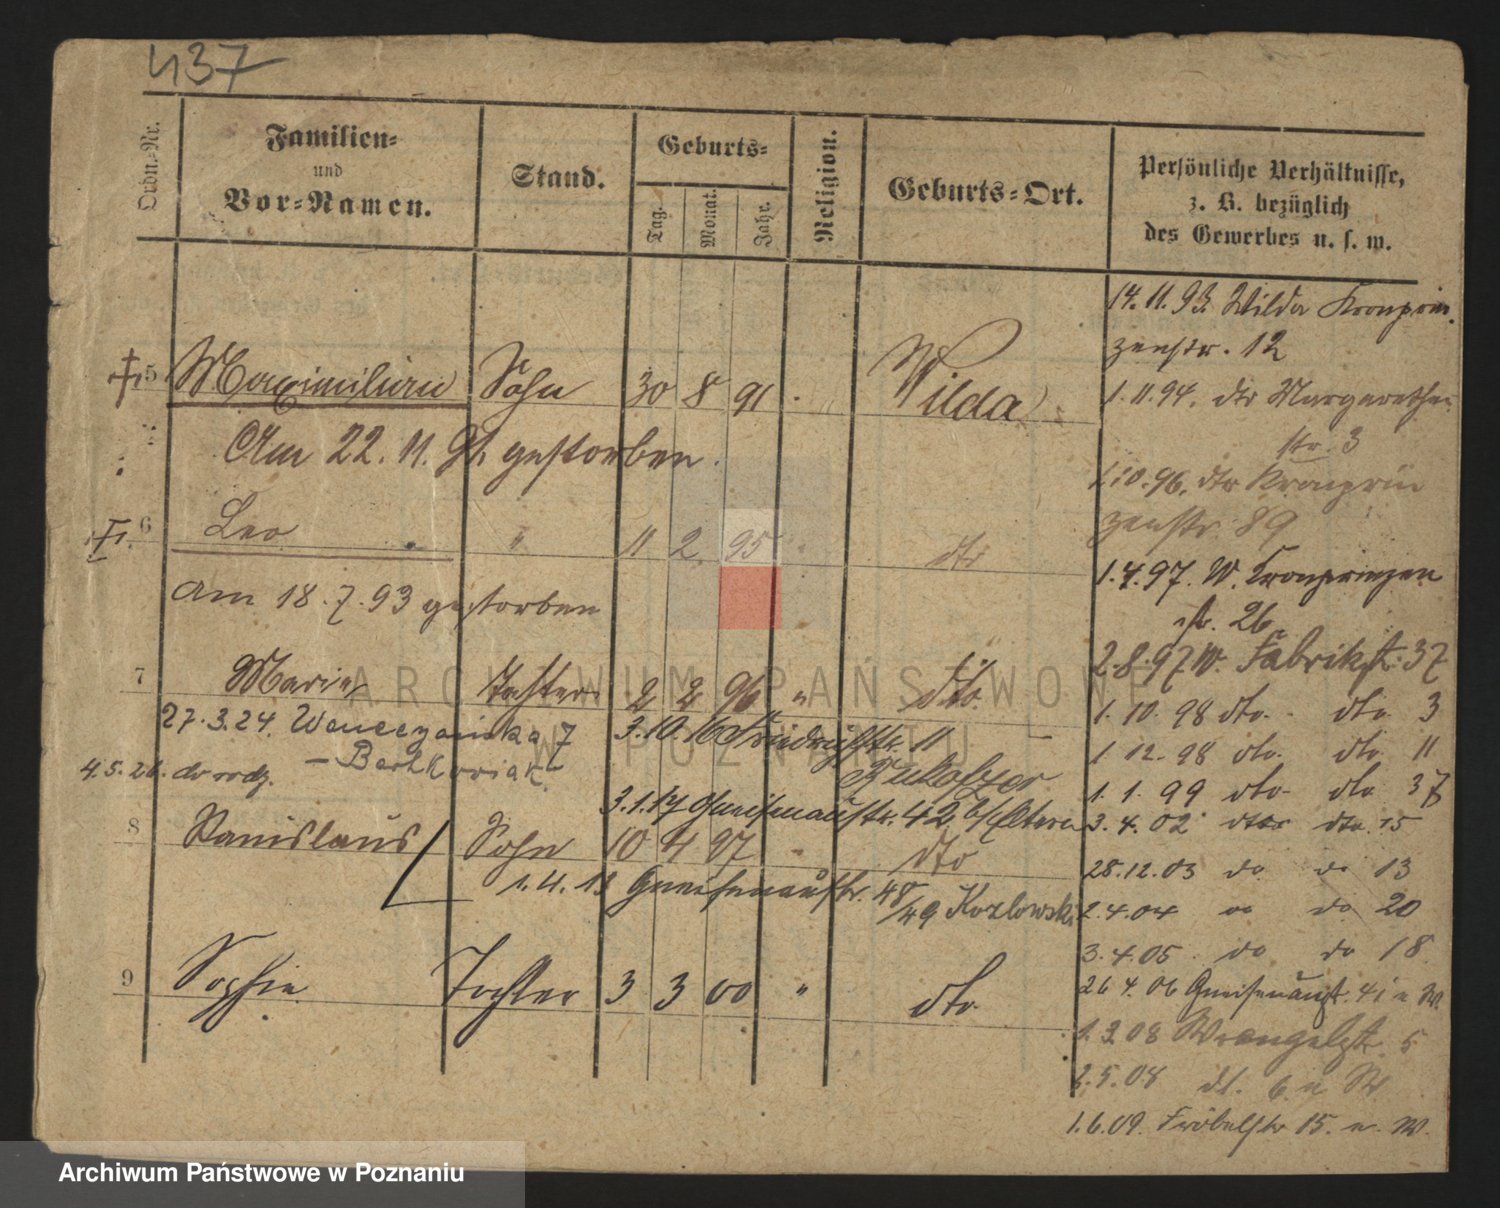 437
Ordn.-Nr.
Familien-
und
Vor-Namen.
Stand.
Geburts-
Tag. Monat. Jahr.
Religion.
Geburts-Ort.
Persönliche Verhältnisse,
z. B. bezüglich
des Gewerbes u. s. w.
14. 11. 93. Wilda Kronprin
zenstr. 12
5 Maximilian Sohn 30 8 91 Wilda
1. 11. 94. dto Margarethen
str. 3
Am 22. 11. 91 gestorben.
1.10.96. dto Kronprin
zenstr. 89
6 Leo " 11 2. 93 " dto
1.4.97. W. Kronprinzen
str. 26
Am 18.7.93 gestorben
2.8.97 W. Fabrikstr. 37
7 Marie Tochter 2 2 96 " dto.
1. 10. 98 dto. dto. 3
27.3.24. 7
3.10.16 Friedrichstr. 11
1 12. 98 dto. dto. 11
- Bartkowiak -
4.5.26. do rodz.
1. 1. 99 dto. dto. 37
3.1.17 Gneisenaustr. 42 b/Eltern
3. 4. 02 dto dto. 15
8 Stanislaus Sohn 10 4 97 " dto
28.12.03 do do 13
1.4.13 Gneisenaustr. 48
/49 Kozlowski
2.4.04 do do 20
3.4.05. do do 18
9 Sophie Tochter 3 3 00 " dto.
26 4. 06 Gneisenaustr. 41 n W.
1.3.08 Wrangelstr. 5
2.5.08 dt. 6 n W
1.6.09. Fröbelstr 15. n. W.
ARCHIWUM PAŃSTWOWE
W POZNANIU
Archiwum Państwowe w Poznaniu